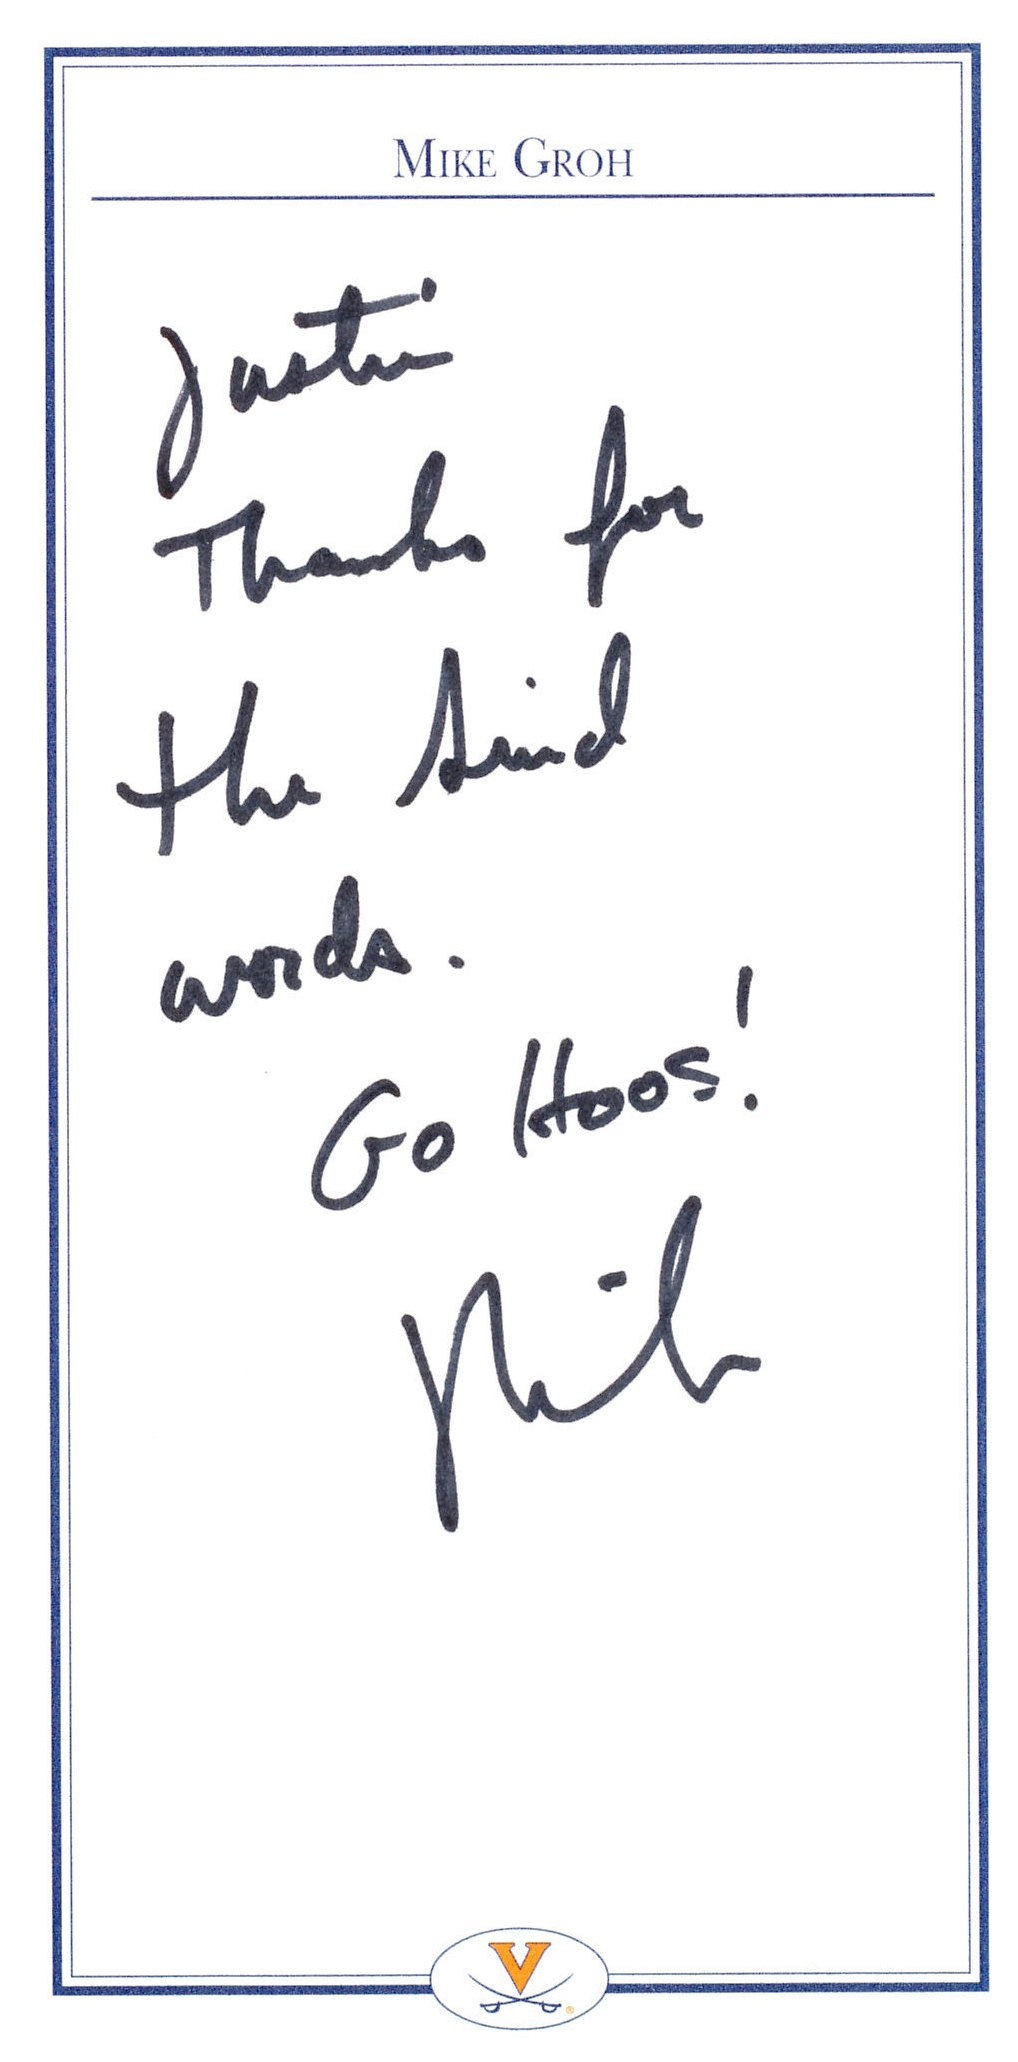 MIKE GROH
Justin
Thanks for
the kind
words.
Go Hoos!
Mike
V
®